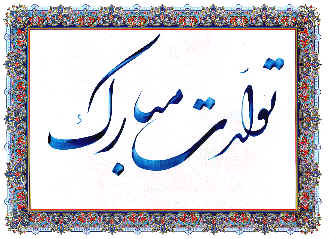 تولدت مبارک